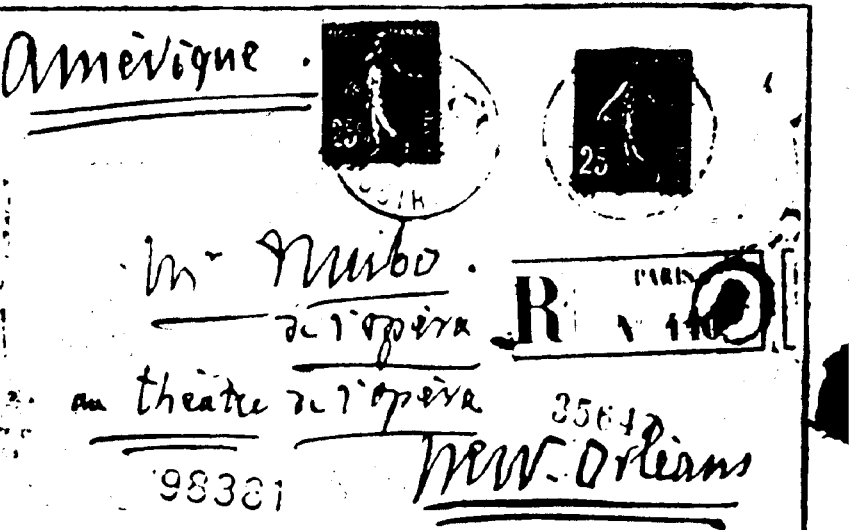 Amérique.
25
25
Mr Nuibo.
de l'opéra
R PARIS
N
au théâtre de l'opéra
New-Orléans
98381